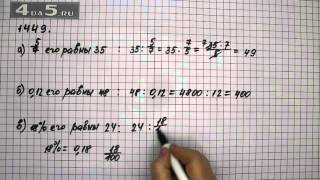 4DA5.RU
1449.
а) 5/7 его равны 35 : 35 : 5/7 = 35 · 7/5 = 35 · 7/5 = 49
б) 0,12 его равны 48 : 48 : 0,12 = 4800 : 12 = 400
в) 18% его равны 24 : 24 : 18
18% = 0,18 18/100